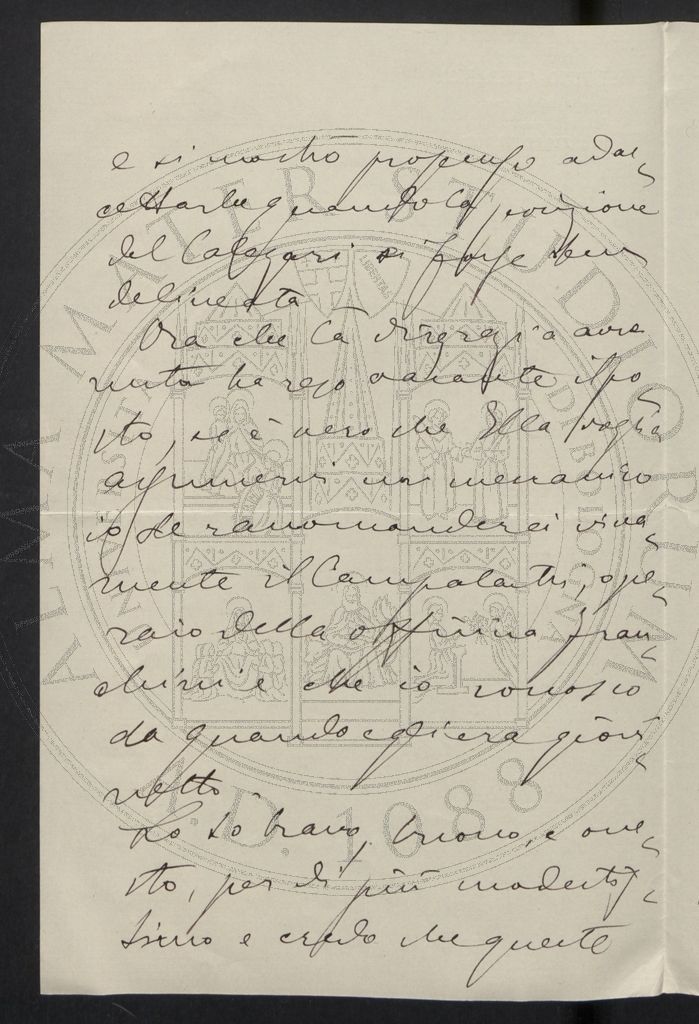 e si mostrò propenso ad ac-
cettarle quando la posizione
del Calegari si fosse ben
delineata
Ora che la disgrazia avve
nuta ha reso vacante il po
sto, se è vero che Ella voglia
assumersi un meccanico
io Le raccomanderei viva-
mente il Campalastri, ope-
raio della officina Fran-
chini e che io conosco
da quando egli era giovi-
netto.
Lo so bravo, buono, e one-
sto, per di più modestis-
simo e credo che queste
ALMA MATER STUDIORUM
A.D. 1088